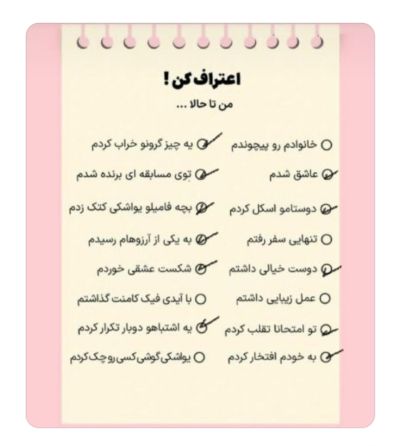 اعتراف کن !
من تا حالا ...
خانوادم رو پیچوندم
یه چیز گرونو خراب کردم
عاشق شدم
توی مسابقه ای برنده شدم
دوستامو اسکل کردم
بچه فامیلو یواشکی کتک زدم
تنهایی سفر رفتم
به یکی از آرزوهام رسیدم
دوست خیالی داشتم
شکست عشقی خوردم
عمل زیبایی داشتم
با آیدی فیک کامنت گذاشتم
تو امتحانا تقلب کردم
یه اشتباهو دوبار تکرار کردم
به خودم افتخار کردم
یواشکی گوشی کسی رو چک کردم